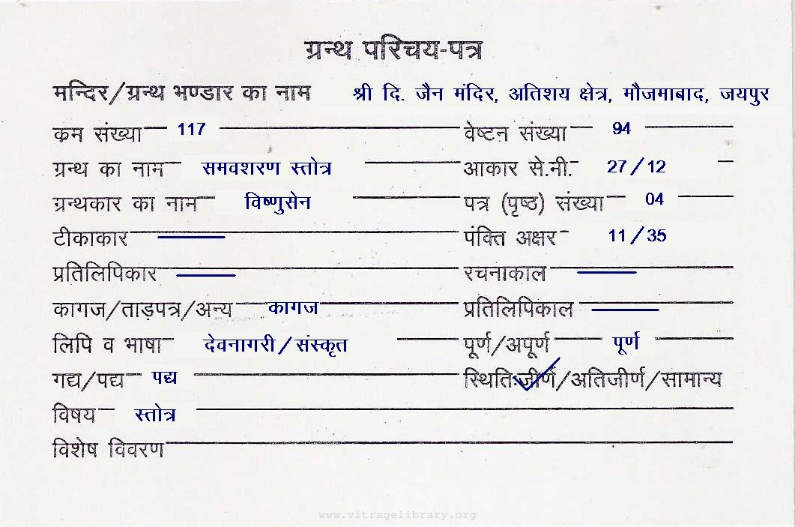 ग्रन्थ परिचय-पत्र
मन्दिर/ग्रन्थ भण्डार का नाम श्री दि. जैन मंदिर, अतिशय क्षेत्र, मौजमाबाद, जयपुर
कम संख्या 117 वेष्टन संख्या 94
ग्रन्थ का नाम समवशरण स्तोत्र आकार से.नी. 27/12
ग्रन्थकार का नाम विष्णुसेन पत्र (पृष्ठ) संख्या 04
टीकाकार पंक्ति अक्षर 11/35
प्रतिलिपिकार रचनाकाल
कागज/ताड़पत्र/अन्य कागज प्रतिलिपिकाल
लिपि व भाषा देवनागरी/संस्कृत पूर्ण/अपूर्ण पूर्ण
गद्य/पद्य पद्य स्थिति:जीर्ण/अतिजीर्ण/सामान्य
विषय स्तोत्र
विशेष विवरण
www.vitragelibrary.org